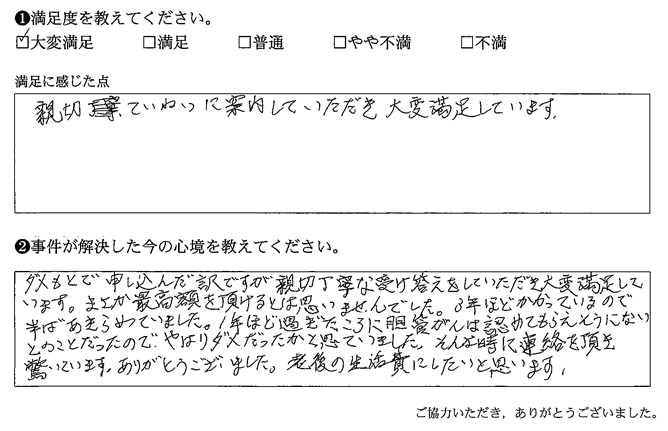 ❶満足度を教えてください。
☑大変満足 □満足 □普通 □やや不満 □不満
満足に感じた点
親切ていねいに案内していただき大変満足しています。
❷事件が解決した今の心境を教えてください。
ダメもとで申し込んだ訳ですが親切丁寧な受け答えをしていただき大変満足して
います。まさか最高額を頂けるとは思いませんでした。3年ほどかかっているので
半ばあきらめていました。1年ほど過ぎたころに胆管がんは認めてもらえそうにない
とのことだったので、やはりダメだったかと思っていました。そんな時に連絡を頂き
驚いています。ありがとうございました。老後の生活費にしたいと思います。
ご協力いただき，ありがとうございました。